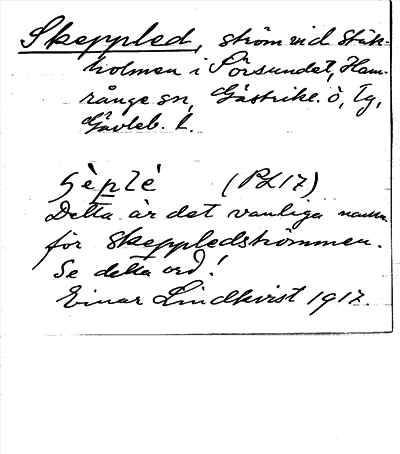 Skeppled, ström vid Stäk-
holmen i Sörsundet, Ham-
rånge sn, Gästrikl. ö, Tg,
Gävleb. l.
(PL17)
Detta är det vanliga namn
för skeppledströmmen.
Se detta ord!
Einar Lindkvist 1917.